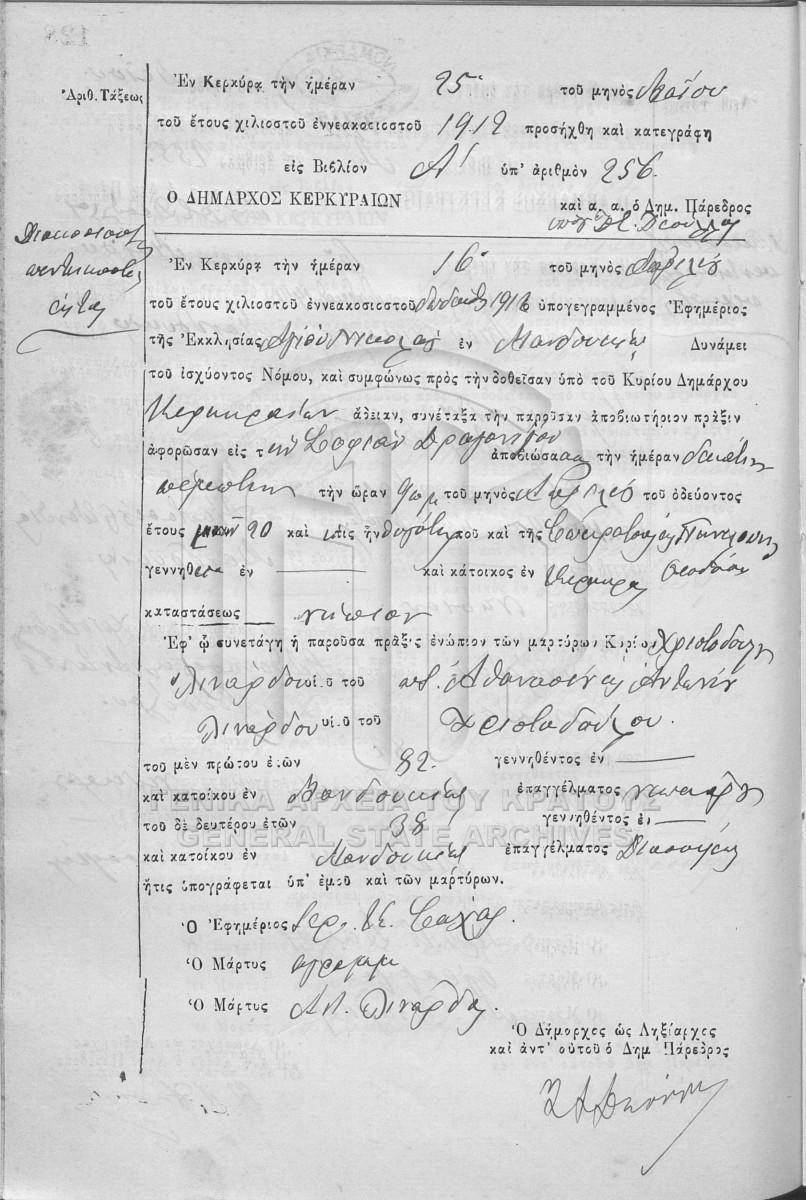 Ἀριθ. Τάξεως
Ἐν Κερκύρᾳ τὴν ἡμέραν 25 τοῦ μηνὸς Μαΐου
τοῦ ἔτους χιλιοστοῦ ἐννεακοσιοστοῦ 1912 προσήχθη καὶ κατεγράφη
εἰς Βιβλίον Α' ὑπ' ἀριθμὸν 256
Ο ΔΗΜΑΡΧΟΣ ΚΕΡΚΥΡΑΙΩΝ
καὶ α. α. ὁ Δημ. Πάρεδρος
Διακοσιοστὴ
πεντηκοστὴ
ἕκτη
Ἐν Κερκύρᾳ τὴν ἡμέραν 16 τοῦ μηνὸς Ἀπριλίου
τοῦ ἔτους χιλιοστοῦ ἐννεακοσιοστοῦ δωδεκάτου 1912 ὑπογεγραμμένος Ἐφημέριος
τῆς Ἐκκλησίας Ἁγίου Νικολάου ἐν Μανδουκίῳ Δυνάμει
τοῦ ἰσχύοντος Νόμου, καὶ συμφώνως πρὸς τὴν δοθεῖσαν ὑπὸ τοῦ Κυρίου Δημάρχου
Κερκυραίων ἄδειαν, συνέταξα τὴν παροῦσαν ἀποβιωτήριον πρᾶξιν
ἀφορῶσαν εἰς τὴν Σοφίαν ἀποβιώσασαν τὴν ἡμέραν δεκάτην
πέμπτην τὴν ὥραν 9 π.μ τοῦ μηνὸς Ἀπριλίου τοῦ ὁδεύοντος
ἔτους 20 καὶ τῆς
γεννηθεῖσα ἐν — καὶ κάτοικος ἐν Κέρκυρᾳ
καταστάσεως νήπιον
Ἐφ' ᾧ συνετάγη ἡ παροῦσα πρᾶξις ἐνώπιον τῶν μαρτύρων Κυρίων Χριστοδούλου
Λινάρδου υἱοῦ τοῦ Ἀθανασίου καὶ Ἀντωνίου
Λινάρδου υἱοῦ τοῦ Χριστοδούλου.
τοῦ μὲν πρώτου ἐτῶν 82 γεννηθέντος ἐν —
καὶ κατοίκου ἐν Μανδουκίῳ ἐπαγγέλματος
τοῦ δὲ δευτέρου ἐτῶν 38 γεννηθέντος ἐν —
καὶ κατοίκου ἐν Μανδουκίῳ ἐπαγγέλματος
ἥτις ὑπογράφεται ὑπ' ἐμοῦ καὶ τῶν μαρτύρων.
Ὁ Ἐφημέριος Ἱερ.
Ὁ Μάρτυς ἀγράμματ
Ὁ Μάρτυς Ἀντ. Λινάρδος.
Ὁ Δήμαρχος ὡς Ληξίαρχος
καὶ ἀντ' αὐτοῦ ὁ Δημ Πάρεδρος
ΓΕΝΙΚΑ ΑΡΧΕΙΑ ΤΟΥ ΚΡΑΤΟΥΣ
GENERAL STATE ARCHIVES